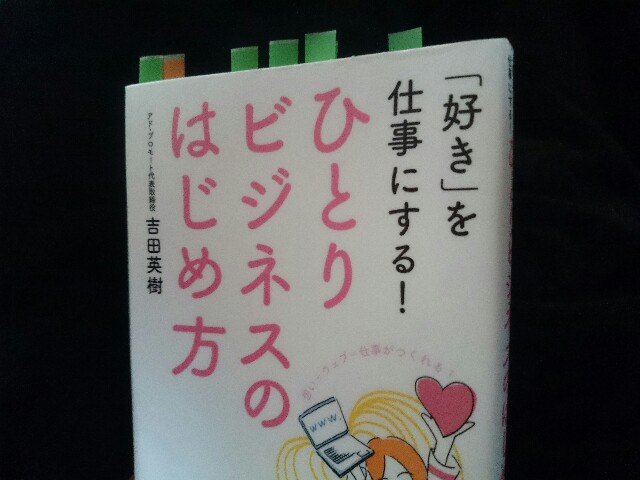 「好き」を
仕事にする！
ひとり
ビジネスの
はじめ方
アド・プロモート代表取締役
吉田英樹
想い→ウェブ→仕事がつくれる！
www.